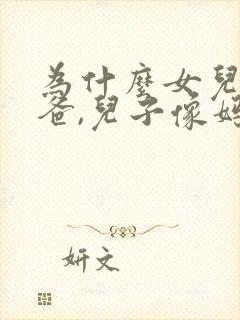 為什麼女兒
爸,兒子像媽
妍文